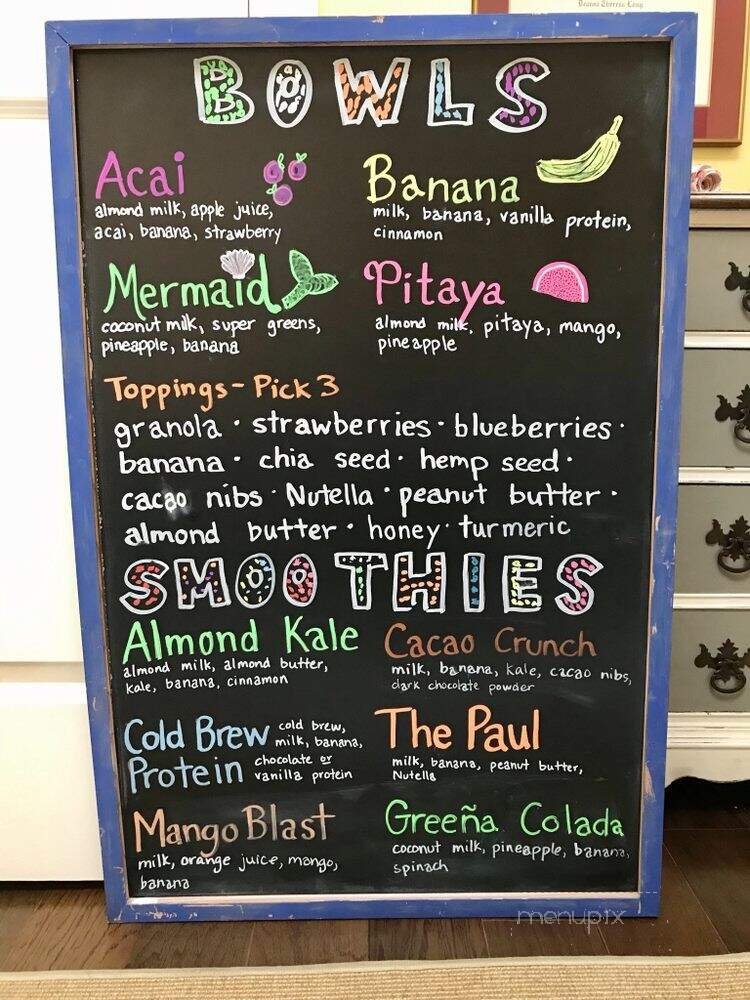 Deanna Theresa Long
BOWLS
Acai
almond milk, apple juice,
acai, banana, strawberry
Banana
milk, banana, vanilla protein,
cinnamon
Mermaid
coconut milk, super greens,
pineapple, banana
Pitaya
almond milk, pitaya, mango,
pineapple
Toppings - Pick 3
granola · strawberries · blueberries ·
banana · chia seed · hemp seed ·
cacao nibs · Nutella · peanut butter ·
almond butter · honey · turmeric
SMOOTHIES
Almond Kale
almond milk, almond butter,
kale, banana, cinnamon
Cacao Crunch
milk, banana, kale, cacao nibs,
dark chocolate powder
Cold Brew
Protein
cold brew,
milk, banana,
chocolate or
vanilla protein
The Paul
milk, banana, peanut butter,
Nutella
Mango Blast
milk, orange juice, mango,
banana
Greeña Colada
coconut milk, pineapple, banana,
spinach
menupix